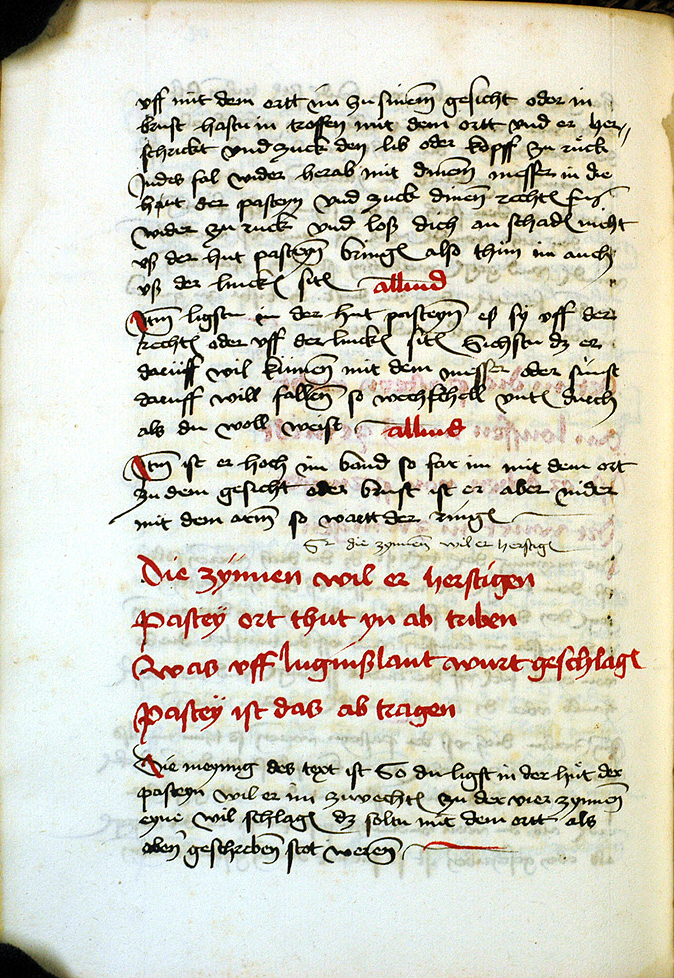 uff mit dem ortt im zu sinem gesicht oder in
brust hastu in troffen mit dem ortt vnd er her
schrickt vnd zuck den lib oder kopff zu rück
Indes fal wider herab mit dinem messer in die
hüt der pasteyn vnd zuck dinen recht fus
wider zu ruck vnd loß dich an schad nicht
uß der hut pasteyn bring also thün im auch
uß der linck sit allind
Itm ligstu in der hut pasteyn eß sy uff der
recht oder uff der linck sit Sichstu dz er
daruff wil kümen mit dem messer oder sünst
daruff will fallen so wechschell vnt durch
als du woll weist allind
Itm ist er hoch im band so far im mit dem ort
zu dem gesicht oder brust ist er aber nider
mit dem arm so wartt der ring
Sr die zynnen wil er herstig
Die zynnen wil er herstigen
Pastey ort thut yn ab triben
Was uff luginßlant wurt geschlag
Pastey ist das ab tragen
Die meynüg des text ist So du ligst in der hüt der
pasteyn wil er im zuvecht zu der vier zynnen
eyne wil schlag dz soltu mit dem ortt als
oben geschreben stot weren